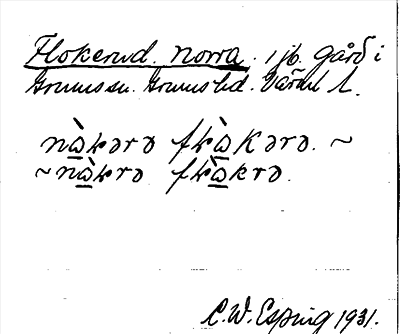 Flokerud. Norra. 1 jb. gård i
Grums sn. Grums hd. Värml l.
nàkərə fkàkərə. ~
~ nàkrə fkàkrə.
C.W. Esping 1931.